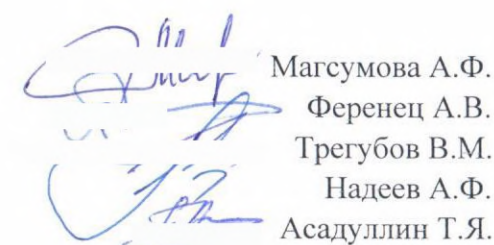 Магсумова А.Ф.
Ференец А.В.
Трегубов В.М.
Надеев А.Ф.
Асадуллин Т.Я.